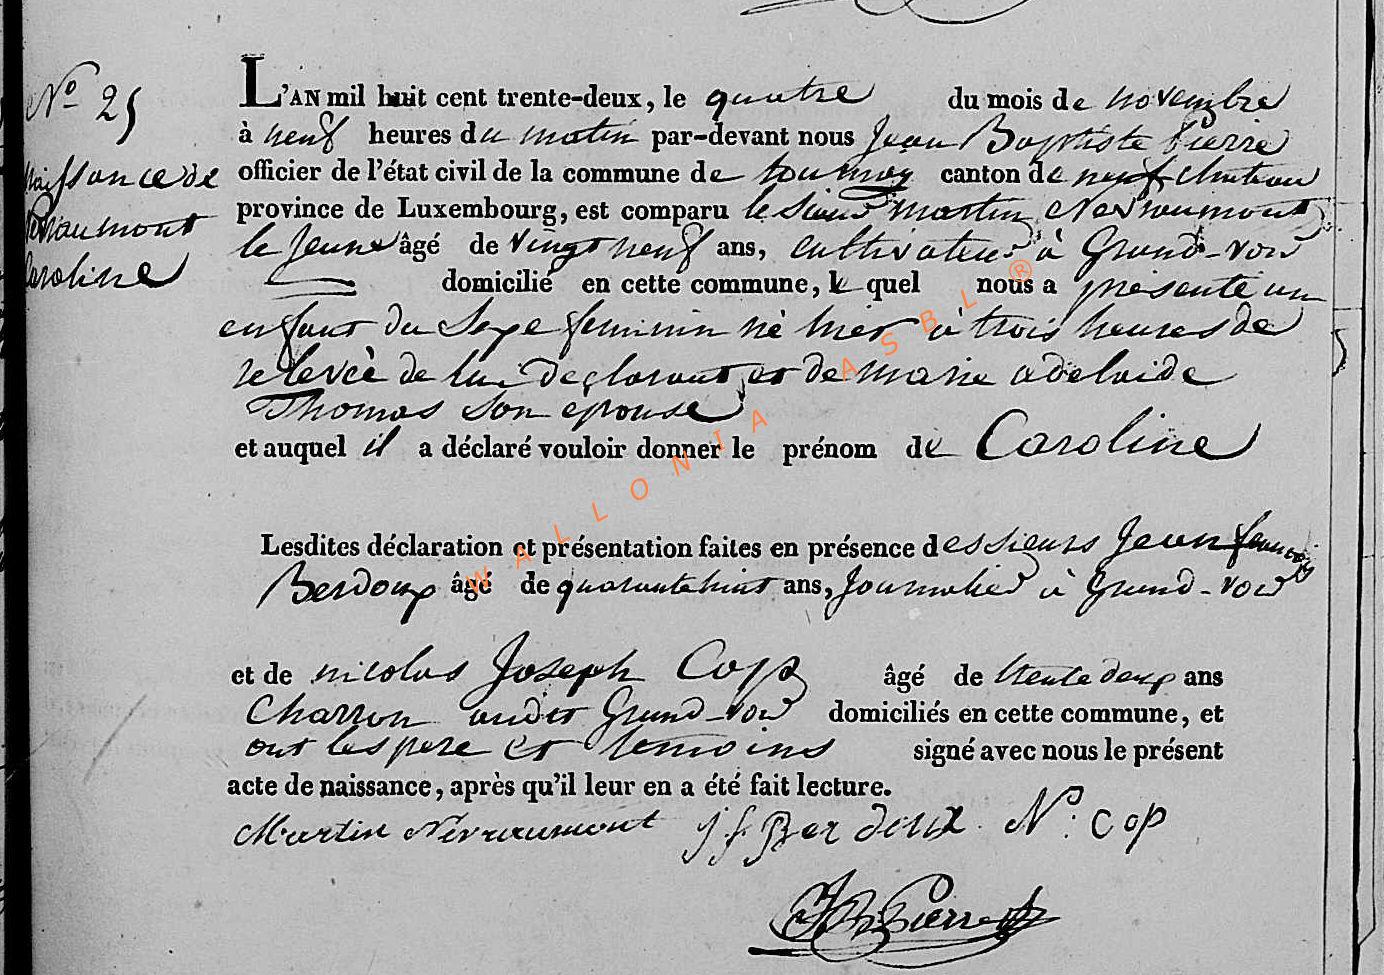 N° 25
Naissance de
Nevraumont
Caroline
L'AN mil huit cent trente-deux, le quatre du mois de novembre
à neuf heures du matin par-devant nous Jean Baptiste Pierre
officier de l'état civil de la commune de tournay canton de neufchateau
province de Luxembourg, est comparu le Sieur martin Nevraumont
le jeune âgé de vingt neuf ans, cultivateur à Grand-voir
domicilié en cette commune, le quel nous a présenté un
enfant du Sexe feminin né hier à trois heures de
relevée de lui declarant et de marie adelaide
Thomas Son epouse
et auquel il a déclaré vouloir donner le prénom de Caroline
Lesdites déclaration et présentation faites en présence des sieurs Jean francois
Berdoux âgé de quarante huit ans, Journalier à Grand-voir
et de nicolas Joseph Cop âgé de trente deux ans
Charron audit Grand-voir domiciliés en cette commune, et
ont les pere et temoins signé avec nous le présent
acte de naissance, après qu'il leur en a été fait lecture.
Martin Nevraumont J f Berdoux N: Cop
JB Pierre
WALLONIA ASBL ®